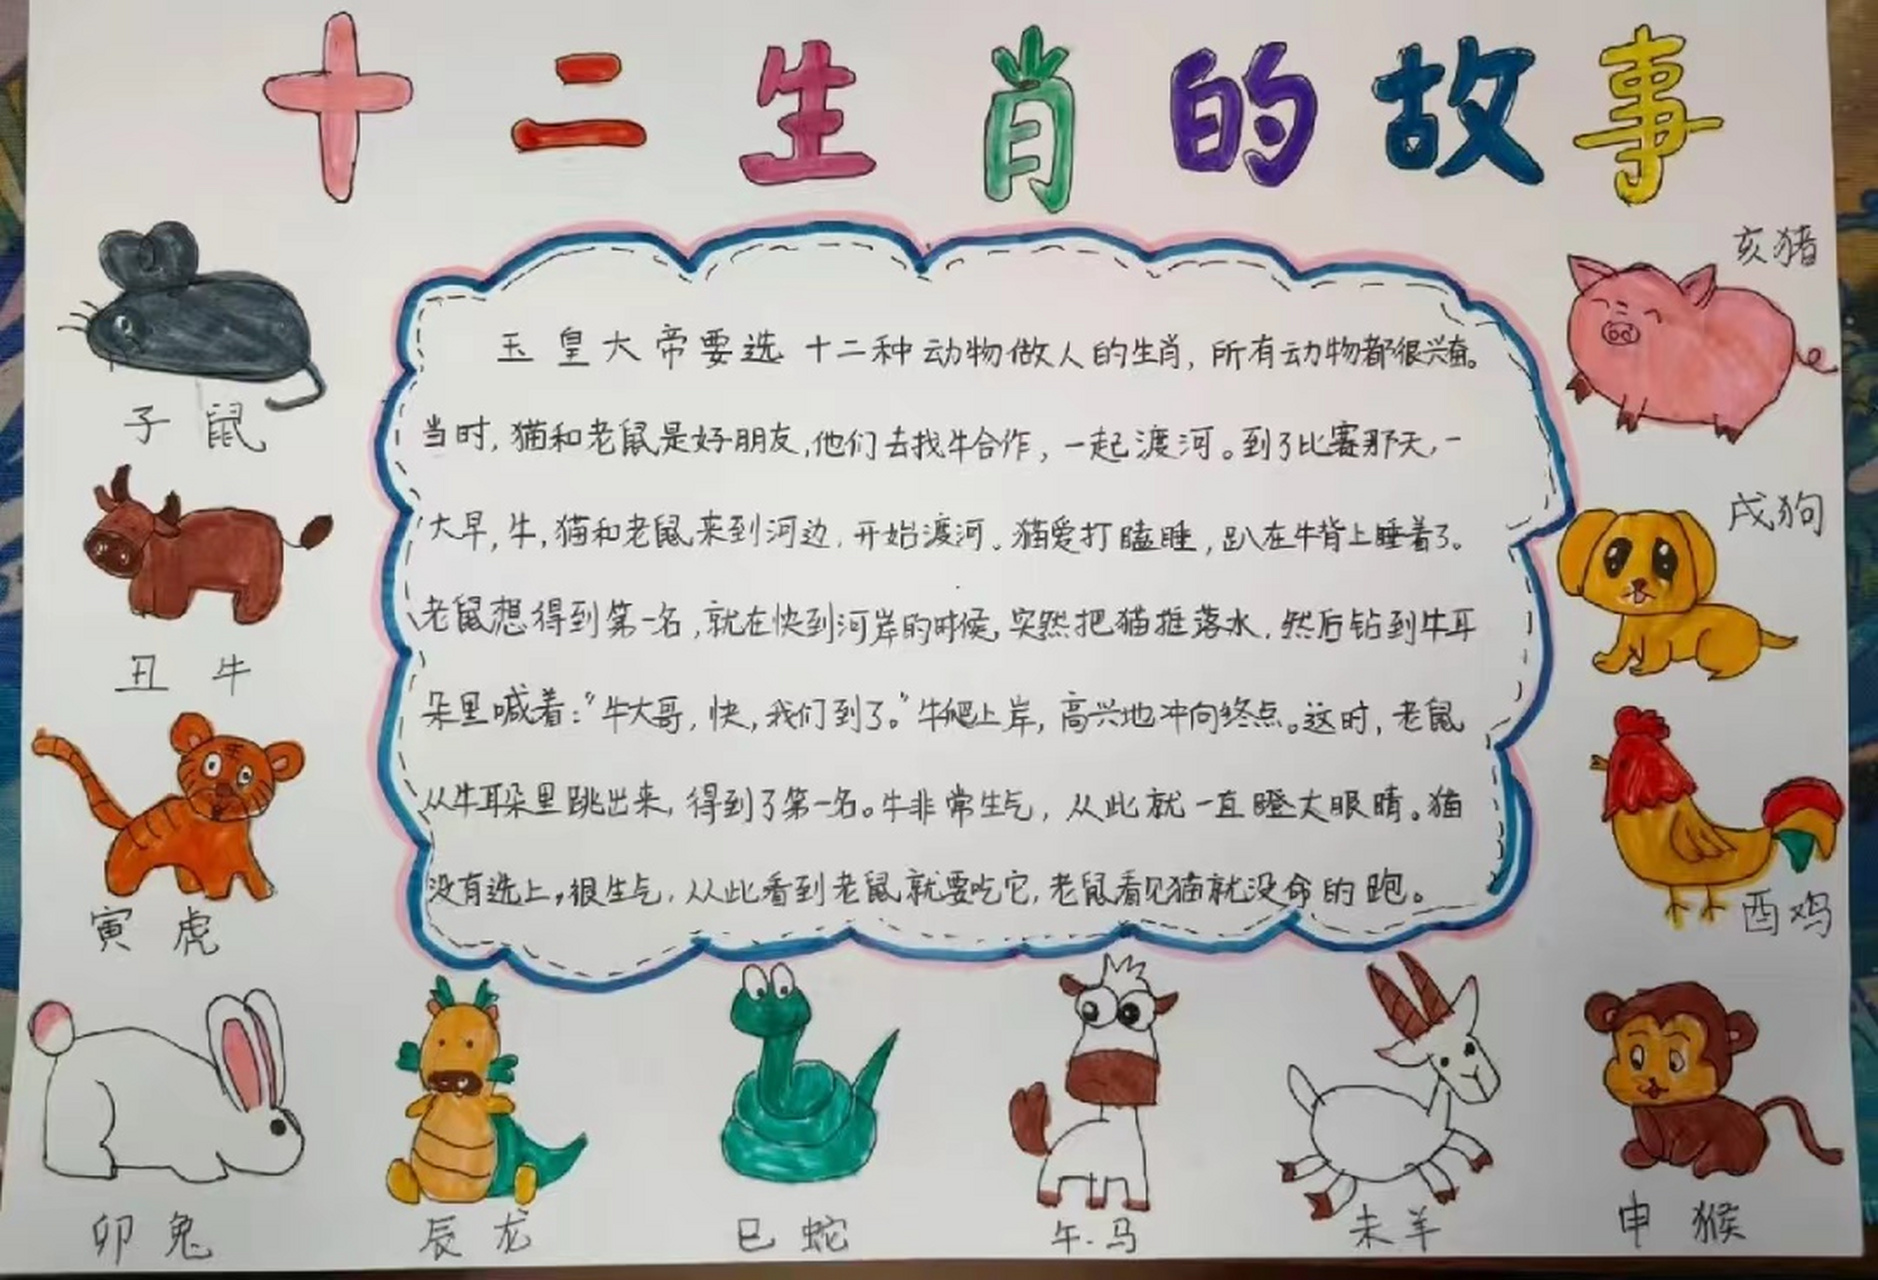 十二生肖的故事
玉皇大帝要选十二种动物做人的生肖,所有动物都很兴奋。
当时,猫和老鼠是好朋友,他们去找牛合作,一起渡河。到了比赛那天,一
大早,牛,猫和老鼠来到河边,开始渡河。猫爱打瞌睡,趴在牛背上睡着了。
老鼠想得到第一名,就在快到河岸的时候,突然把猫推落水,然后钻到牛耳
朵里喊着:“牛大哥,快,我们到了。”牛爬上岸,高兴地冲向终点。这时,老鼠
从牛耳朵里跳出来,得到了第一名。牛非常生气,从此就一直瞪大眼睛。猫
没有选上,很生气,从此看到老鼠就要吃它,老鼠看见猫就没命的跑。
子鼠
丑牛
寅虎
卯兔
辰龙
巳蛇
午.马
未羊
申猴
酉鸡
戌狗
亥猪